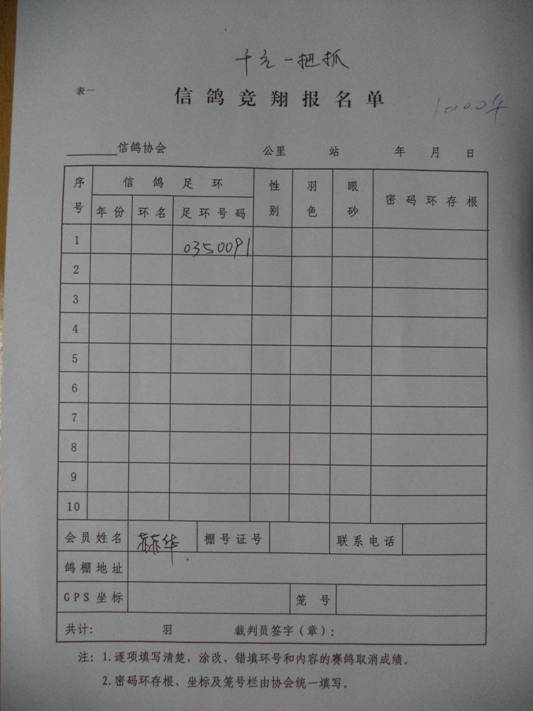 千元一把抓
表一
信鸽竞翔报名单
信鸽协会 公里 站 年 月 日
序号 信鸽足环 性别 羽色 眼砂 密码环存根
年份 环名 足环号码
1 0350091
2
3
4
5
6
7
8
9
10
会员姓名 棚号证号 联系电话
鸽棚地址
GPS坐标 笼号
共计: 羽 裁判员签字(章):
注: 1.逐项填写清楚,涂改、错填环号和内容的赛鸽取消成绩。
2.密码环存根、坐标及笼号栏由协会统一填写。